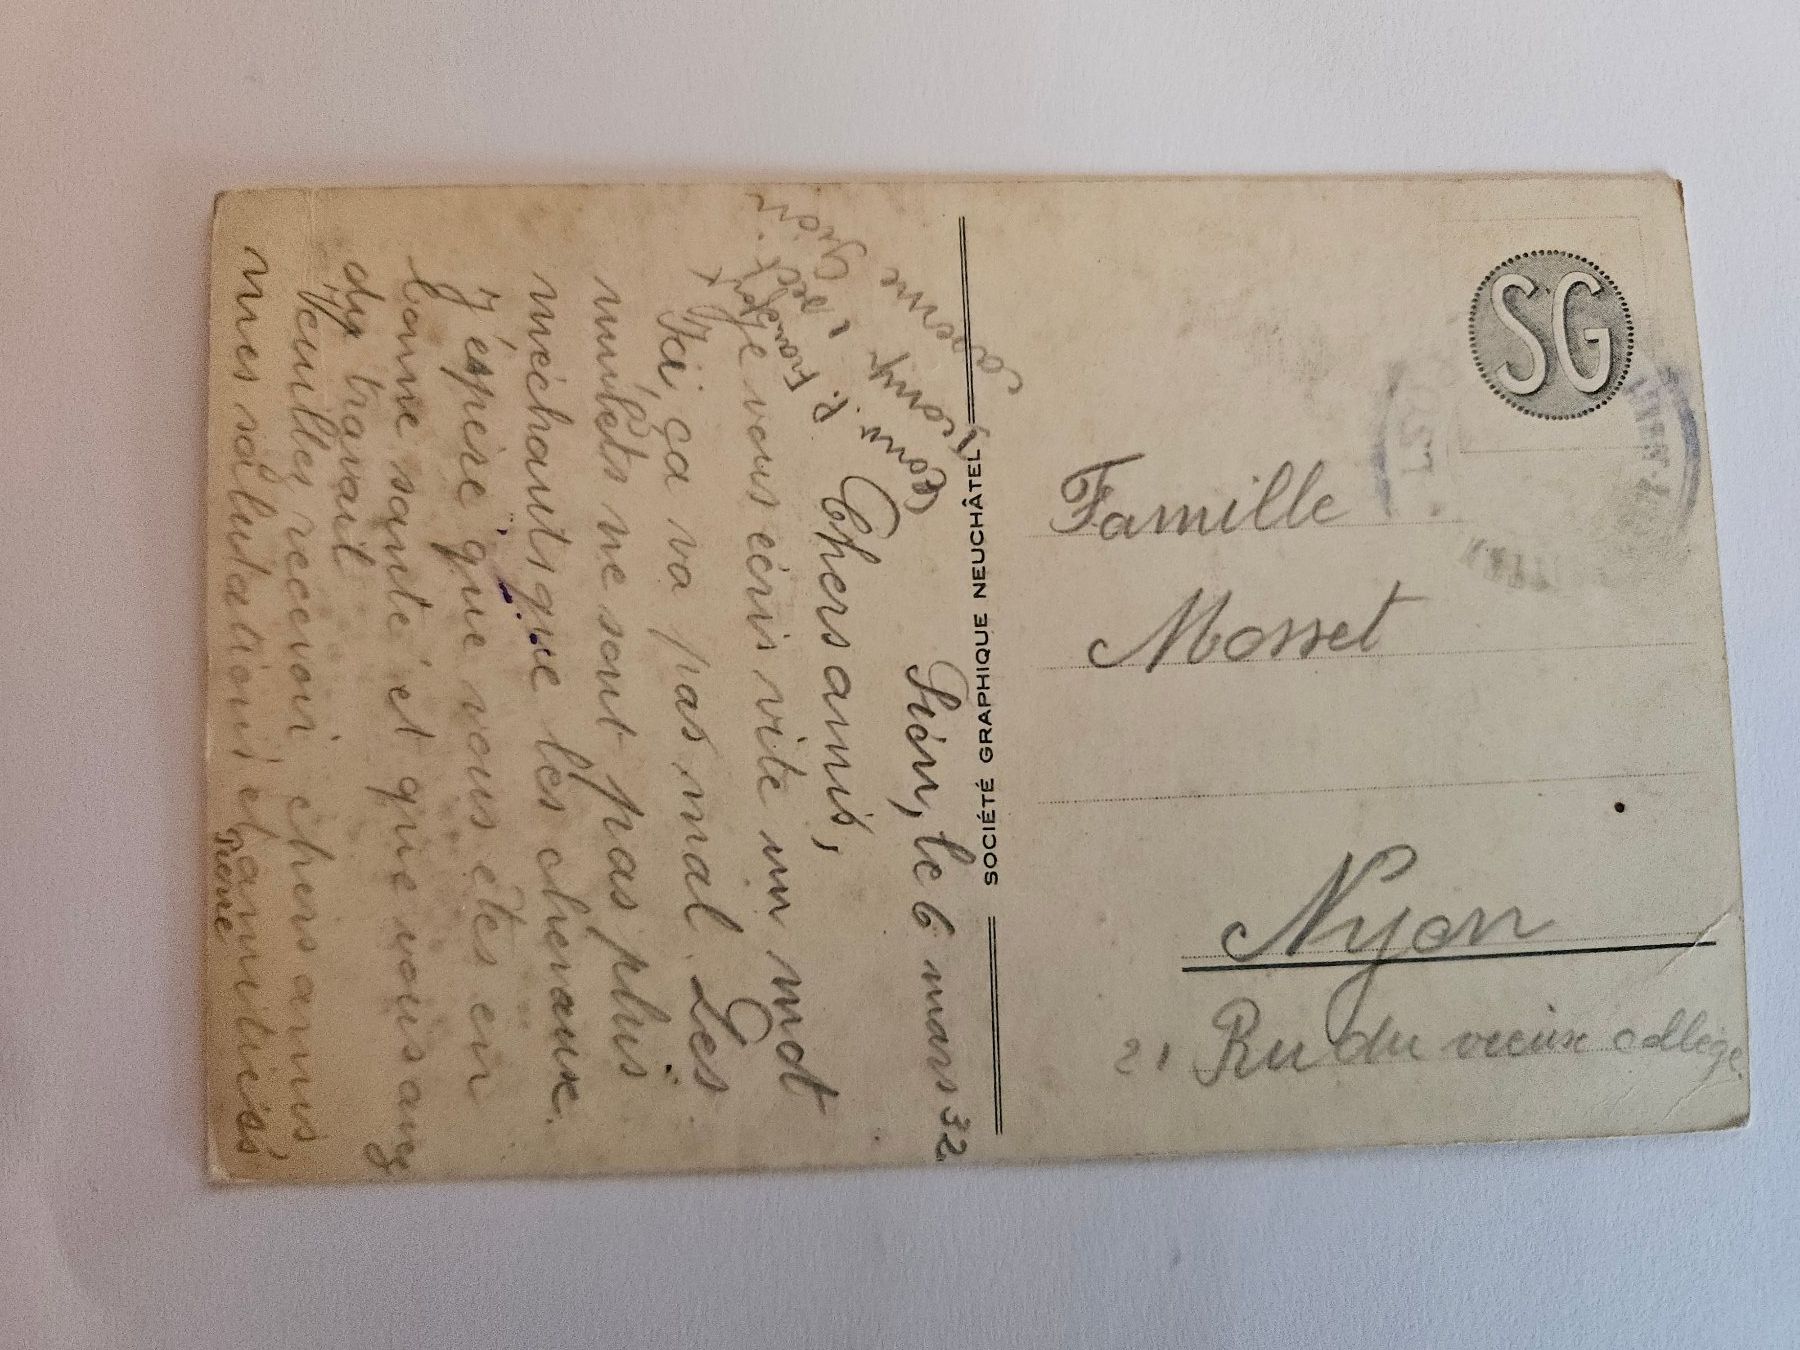 Sion, le 6 mars 32
Chers amis,
Je vous écris vite un mot
Ici, ça va pas mal. Les
mulets ne sont pas plus
méchants que les chevaux.
J'éspère que vous êtes en
bonne santé et que vous avez
du travail
Veuillez recevoir, chers amis
mes salutations et amitiés
Pierre
SOCIÉTÉ GRAPHIQUE NEUCHÂTEL
SG
Famille
Mosset
Nyon
21 Ru du vieux collège